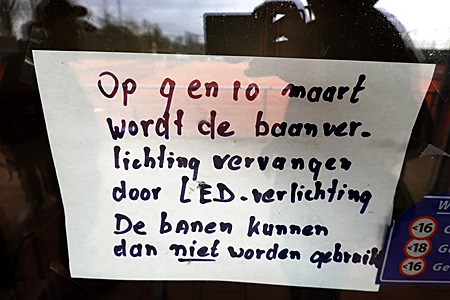 Op 9 en 10 maart
wordt de baanver-
lichting vervangen
door LED-verlichting
De banen kunnen
dan niet worden gebruik
<16
<18
<16